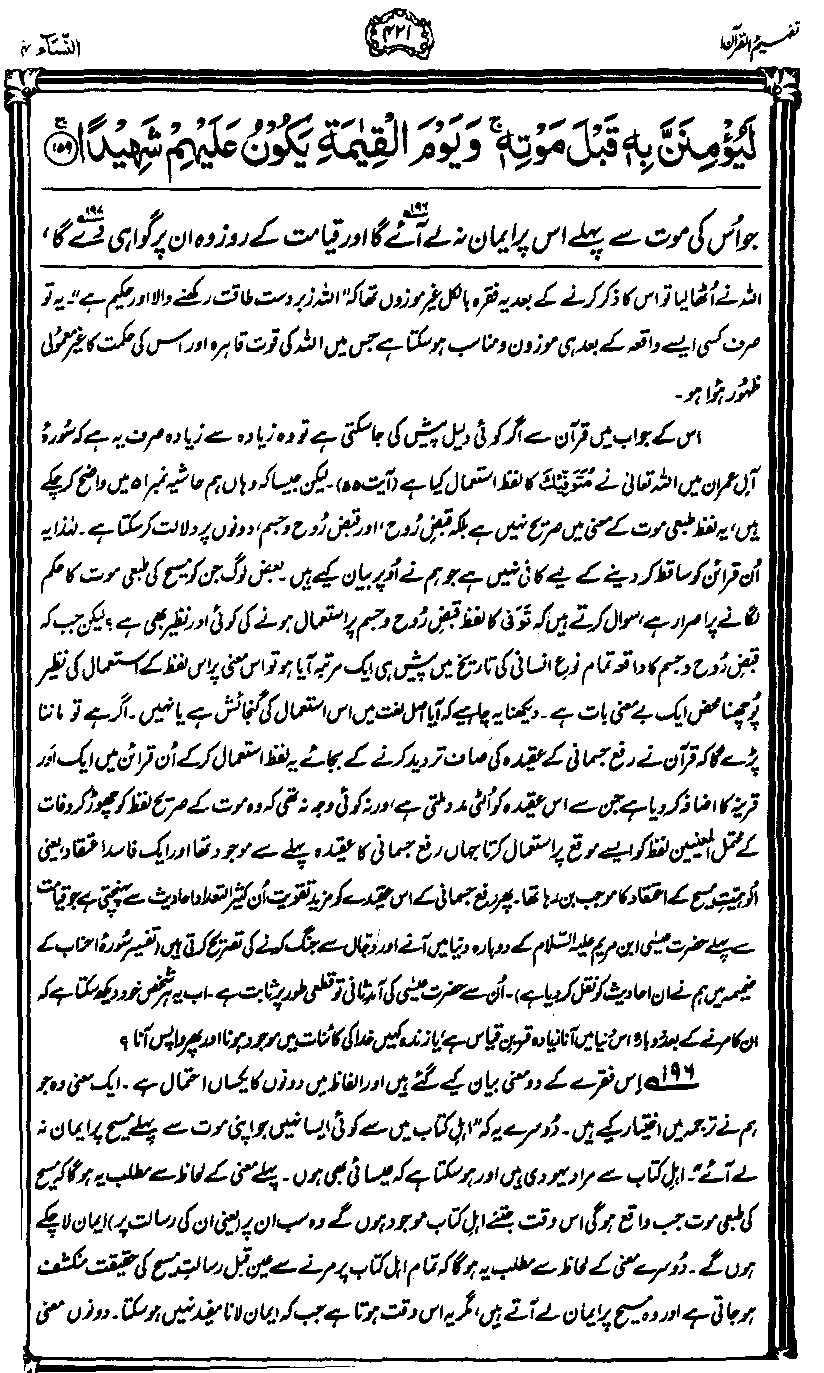 تفہیم القرآن
۴۲۱
النّسآء ۴
لَیُؤْمِنَنَّ بِهٖ قَبْلَ مَوْتِهٖ ۚ وَیَوْمَ الْقِیٰمَةِ یَكُوْنُ عَلَیْهِمْ شَهِیْدًا ۚ ۱۵۹
جو اُس کی موت سے پہلے اس پر ایمان نہ لے آئے گا ۱۹۶ اور قیامت کے روز وہ ان پر گواہی دے گا ۱۹۷،
اللہ نے اُٹھا لیا تو اس کا ذکر کرنے کے بعد یہ فقرہ بالکل غیر موزوں تھا کہ ”اللہ زبردست طاقت رکھنے والا اور حکیم ہے“۔ یہ تو
صرف کسی ایسے واقعہ کے بعد ہی موزون و مناسب ہو سکتا ہے جس میں اللہ کی قوت قاہرہ اور اس کی حکمت کا غیر معمولی
ظہُور ہُوا ہو۔
اس کے جواب میں قرآن سے اگر کوئی دلیل پیش کی جا سکتی ہے تو وہ زیادہ سے زیادہ صرف یہ ہے کہ سُورۂ
آلِ عمران میں اللہ تعالیٰ نے مُتَوَفِّیْکَ کا لفظ استعمال کیا ہے (آیت ۵۵)۔ لیکن جیسا کہ وہاں ہم حاشیہ نمبر ۵۱ میں واضح کر چکے
ہیں، یہ لفظ طبعی موت کے معنی میں صریح نہیں ہے بلکہ قبضِ رُوح، اور قبضِ رُوح و جسم، دونوں پر دلالت کر سکتا ہے۔ لہٰذا یہ
اُن قرائن کو ساقط کر دینے کے لیے کافی نہیں ہے جو ہم نے اُوپر بیان کیے ہیں۔ بعض لوگ جن کو مسیح کی طبعی موت کا حکم
لگانے پر اصرار ہے، سوال کرتے ہیں کہ تَوَفّی کا لفظ قبضِ رُوح و جسم پر استعمال ہونے کی کوئی اور نظیر بھی ہے؟ لیکن جب کہ
قبضِ رُوح و جسم کا واقعہ تمام نوعِ انسانی کی تاریخ میں پیش ہی ایک مرتبہ آیا ہو تو اس معنی پر اس لفظ کے استعمال کی نظیر
پُوچھنا محض ایک بے معنی بات ہے۔ دیکھنا یہ چاہیے کہ آیا اصل لغت میں اس استعمال کی گنجائش ہے یا نہیں۔ اگر ہے تو ماننا
پڑے گا کہ قرآن نے رفعِ جسمانی کے عقیدہ کی صاف تردید کرنے کے بجائے یہ لفظ استعمال کر کے اُن قرائن میں ایک اَور
قرینہ کا اضافہ کر دیا ہے جن سے اس عقیدہ کو اُلٹی مدد ملتی ہے، اور نہ کوئی وجہ نہ تھی کہ وہ موت کے صریح لفظ کو چھوڑ کر وفات
کے محتمل المعنیین لفظ کو ایسے موقع پر استعمال کرتا جہاں رفع جسمانی کا عقیدہ پہلے سے موجود تھا اور ایک فاسد اعتقاد، یعنی
اُلوہیّتِ مسیح کے اعتقاد کا موجب بن رہا تھا۔ پھر رفع جسمانی کے اس عقیدے کو مزید تقویت اُن کثیر التعداد احادیث سے پہنچتی ہے جو قیامت
سے پہلے حضرت عیسٰی ابن مریم علیہ السّلام کے دوبارہ دنیا میں آنے اور دجّال سے جنگ کرنے کی تصریح کرتی ہیں (تفسیر سُورۂ احزاب کے
ضمیمہ میں ہم نے ان احادیث کو نقل کر دیا ہے)۔ اُن سے حضرت عیسٰی کی آمدِ ثانی تو قطعی طور پر ثابت ہے۔ اب یہ ہر شخص خود دیکھ سکتا ہے کہ
ان کا مرنے کے بعد دوبارہ اس دُنیا میں آنا زیادہ قرین قیاس ہے، یا زندہ کہیں خدا کی کائنات میں موجود ہونا اور پھر واپس آنا؟
۱۹۶ اِس فقرے کے دو معنی بیان کیے گئے ہیں اور الفاظ میں دونوں کا یکساں احتمال ہے۔ ایک معنی وہ جو
ہم نے ترجمہ میں اختیار کیے ہیں۔ دُوسرے یہ کہ ”اہل کتاب میں سے کوئی ایسا نہیں جو اپنی موت سے پہلے مسیح پر ایمان نہ
لے آئے“۔ اہل کتاب سے مراد یہودی ہیں اور ہو سکتا ہے کہ عیسائی بھی ہوں۔ پہلے معنی کے لحاظ سے مطلب یہ ہوگا کہ مسیح
کی طبعی موت جب واقع ہوگی اس وقت جتنے اہل کتاب موجود ہوں گے وہ سب ان پر (یعنی ان کی رسالت پر) ایمان لا چکے
ہوں گے۔ دُوسرے معنی کے لحاظ سے مطلب یہ ہوگا کہ تمام اہل کتاب پر مرنے سے عین قبل رسالتِ مسیح کی حقیقت منکشف
ہو جاتی ہے اور وہ مسیح پر ایمان لے آتے ہیں، مگر یہ اس وقت ہوتا ہے جب کہ ایمان لانا مفید نہیں ہو سکتا۔ دونوں معنی